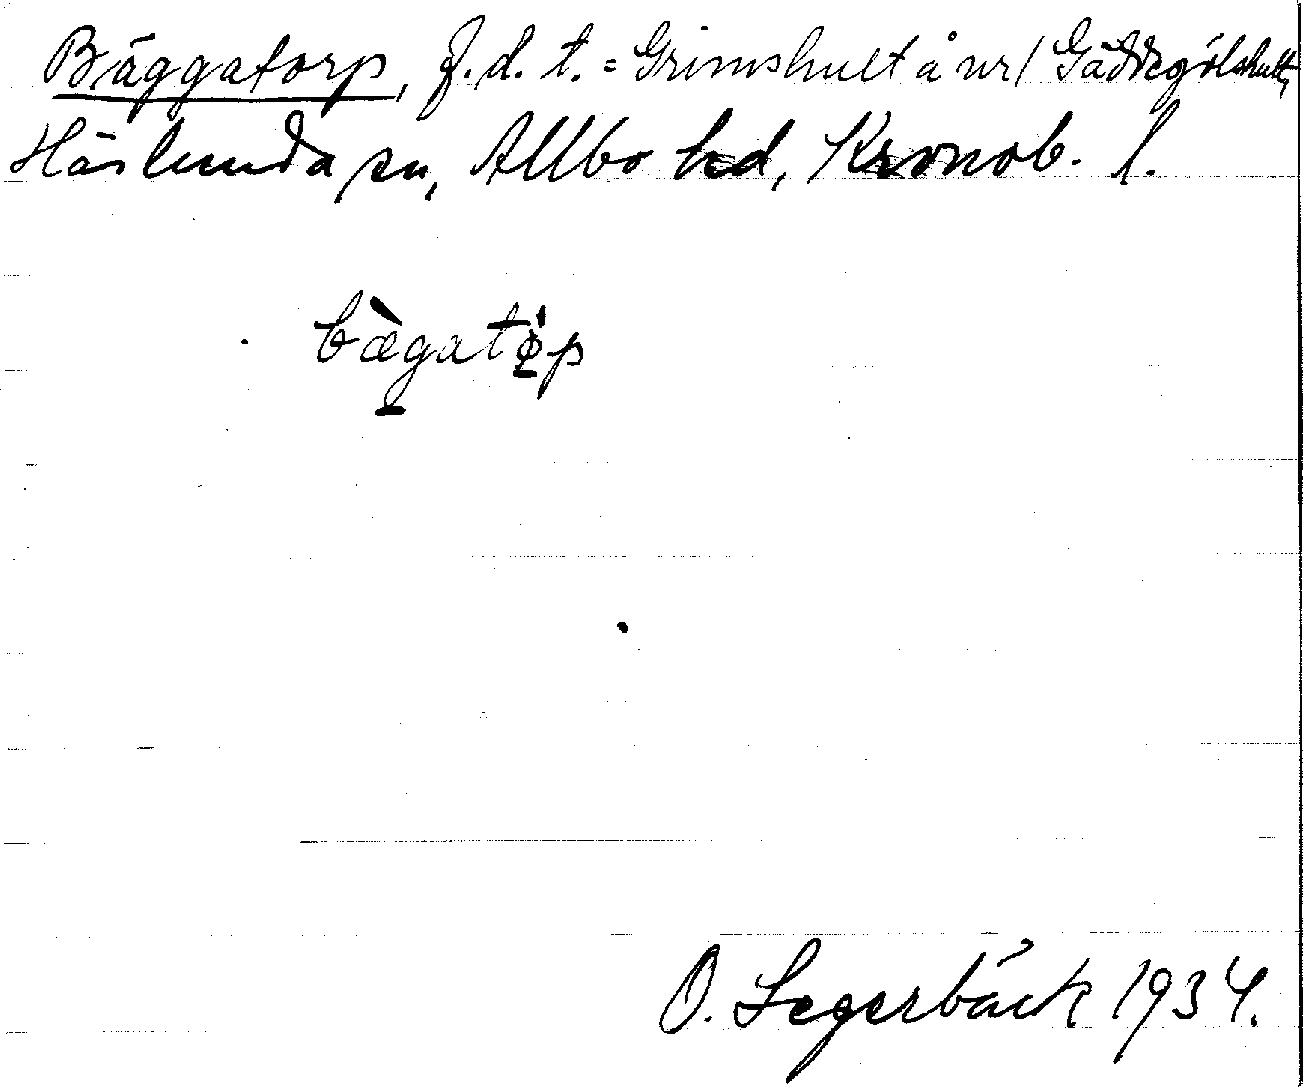 Bäggatorp, f. d. t. = Grimshult å nr 1 Gäddegölshult,
Härlunda sn, Allbo hd, Kronob. l.
bæ̀gatǿp
O. Segerbäck 1934.